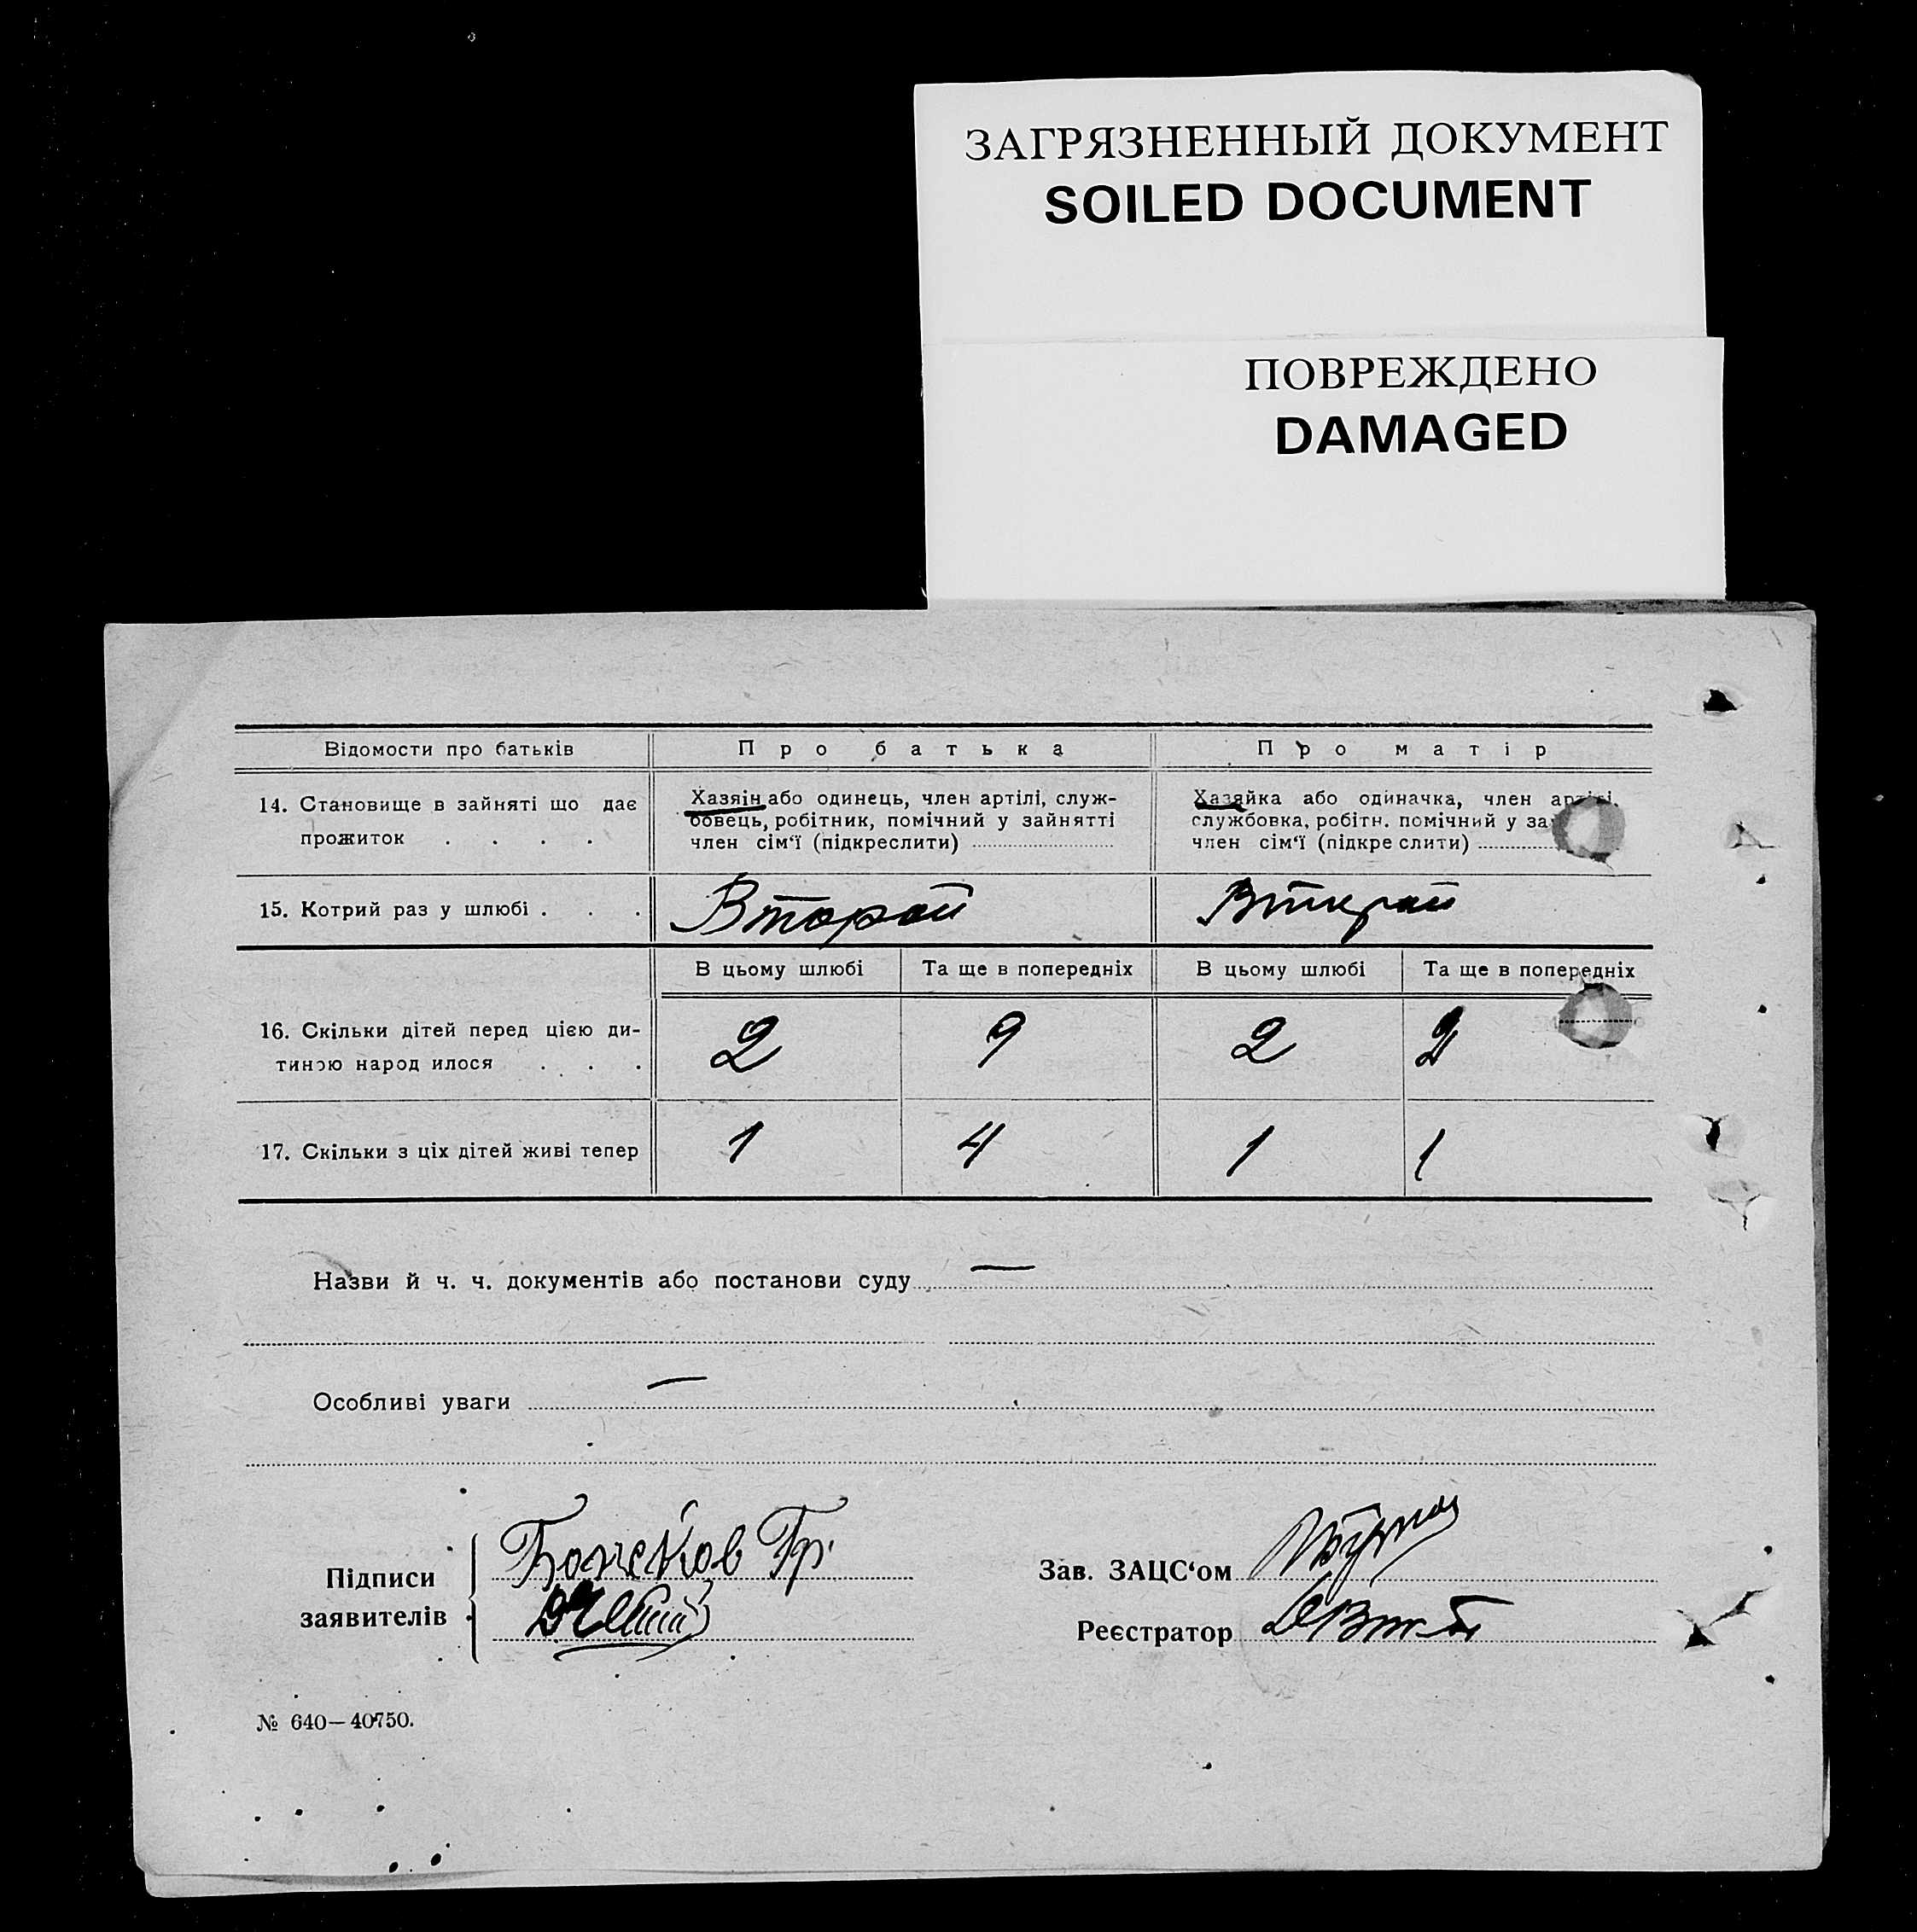 ЗАГРЯЗНЕННЫЙ ДОКУМЕНТ
SOILED DOCUMENT
ПОВРЕЖДЕНО
DAMAGED
Відомости про батьків Про батька Про матір
14. Становище в зайняті що дає прожиток . . . .
Хазяін або одинець, член артілі, служ-
бовець, робітник, помічний у зайнятті
член сім‘ї (підкреслити)
Хазяйка або одиначка, член артілі,
службовка, робітн. помічний у за
член сім‘ї (підкреслити)
15. Котрий раз у шлюбі . . . Второй Второй
В цьому шлюбі Та ще в попередніх В цьому шлюбі Та ще в попередніх
16. Скільки дітей перед цією ди-
тиною народилося . . . . 2 9 2 2
17. Скільки з ціх дітей живі тепер 1 4 1 1
Назви й ч. ч. документів або постанови суду —
Особливі уваги —
Підписи
заявителів
Гр.
Зав. ЗАЦС‘ом
Реєстратор
№ 640—40750.